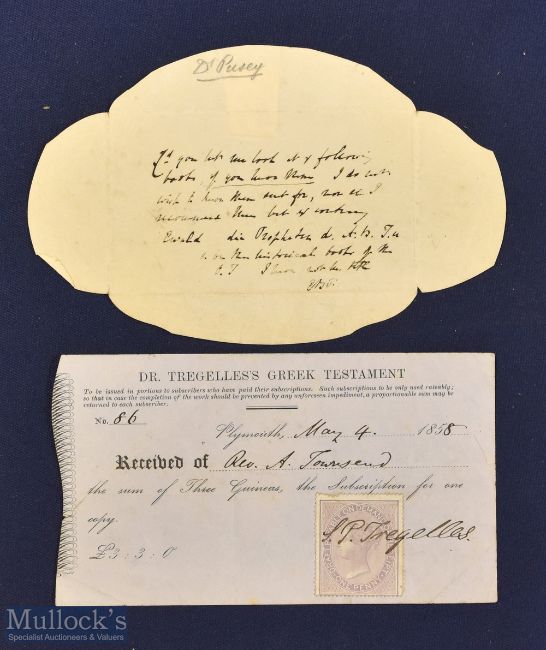 Dr Pusey
If you let me look at y following
books, if you have them I do not
wish to have them sent for, nor do I
recommend them but
Ewald die Propheten d. A. B. T. u
on the historical books of the
O. T I have not the
DR. TREGELLES'S GREEK TESTAMENT
To be issued in portions to subscribers who have paid their subscriptions. Such subscriptions to be only used rateably;
so that in case the completion of the work should be prevented by any unforeseen impediment, a proportionable sum may be
returned to each subscriber.
No. 86
Plymouth, May 4. 1858
Received of Rev. A. Townsend
the sum of Three Guineas, the Subscription for one
copy.
£3 : 3 : 0
S. P. Tregelles.
ONE PENNY
Mullock's
Specialist Auctioneers & Valuers